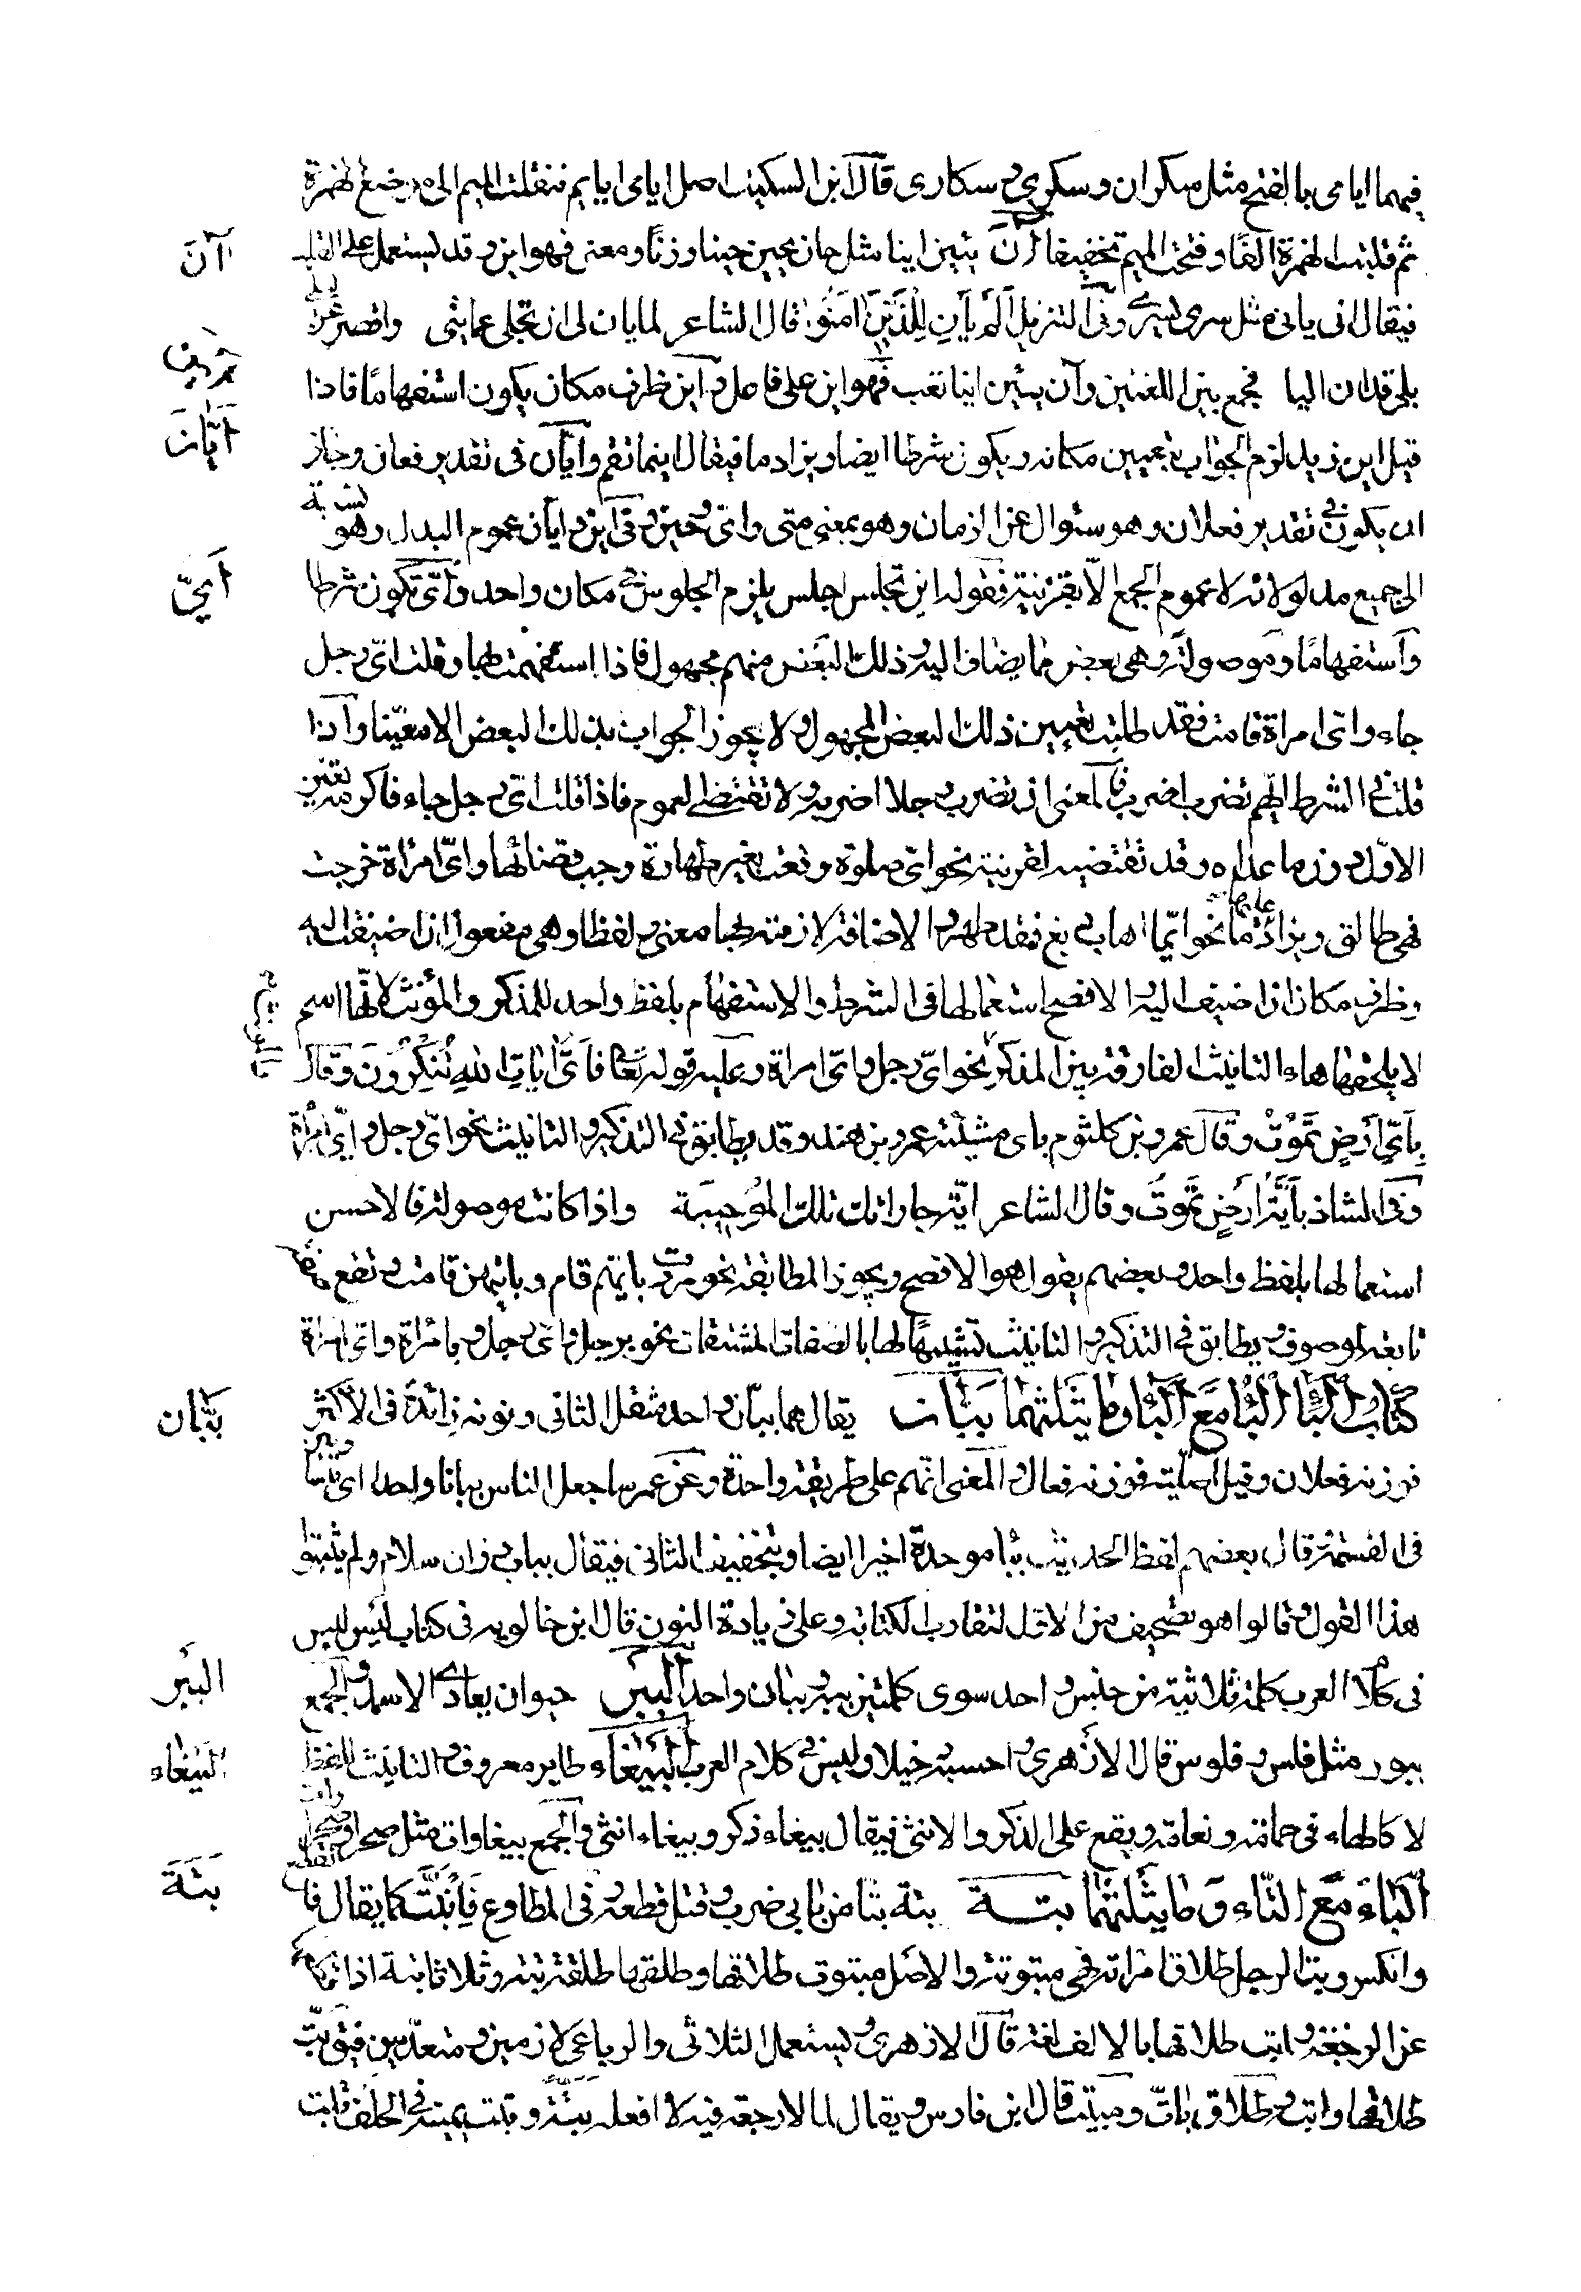 فيهما ايامى بالفتح مثل سكران وسكرى وسكارى قال ابن السكيت اصل ايامى ايايم فنقلت الميم الى موضع الهمزة
ثم قلبت الهمزة الفا وفتحت الميم تخفيفا آن يئين اينا مثل حان يحين حينا وزنا ومعنى فهو اين وقد يستعمل على القلب
آنَ
فيقال انى يانى مثل سرى يسرى وفى التنزيل اَلَمْ يَأْنِ لِلَّذِينَ اٰمَنُوا قال الشاعر لما يان لى ان تجلى عمايتى واقصر عن ليلى
بلى قد ان ليا فجمع بين اللغتين وآن يئين اينا تعب فهو اين على فاعل و اين ظرف مكان يكون استفهاما فاذا
اين
قيل اين زيد لزم الجواب بتعيين مكانه ويكون شرطا ايضا ويزاد ما فيقال اينما تقم واَيّان فى تقدير فعال وجاز
اَيّانَ
ان يكون فى تقدير فعلان وهو سئوال عن الزمان وهو بمعنى متى واىّ حين وفى اين وايان عموم البدل وهو نسبة
الى جميع مدلولاته لا عموم الجمع الّا بقرينة فقوله اين تجلس اجلس يلزم الجلوس فى مكان واحد واىّ تكون شرطا
اَىّ
واستفهامًا وموصولة وهى بعض ما يضاف اليه وذلك البعض منهم مجهول فاذا استفهمت بها وقلت اىّ رجل
جاء واىّ امراة قامت فقد طلبت تعيين ذلك البعض المجهول ولا يجوز الجواب بذلك البعض الا معيّنا واذا
قلت فى الشرط ايّهم تضرب اضرب فالمعنى ان تضرب رجلا اضربه ولا تقتضى العموم فاذا قلت اىّ رجل جاء فاكرمه تعين
الاوّل دون ما عداه وقد تقتضيه لقرينة نحو اىّ صلوة وقعت بغير طهارة وجب قضائها واىّ امراة خرجت
فهى طالق ويزاد عليها ما نحو ايّما اهاب دبغ فقد طهر والاضافة لازمة لها معنى ولفظا وهى مفعول ان اضيفت اليه
وظرف مكان ان اضيفت اليه والافصح استعمالها فى الشرط والاستفهام بلفظ واحد للمذكر والمؤنث لانّها اسم
لا يلحقها هاء التانيث الفارقة بين المذكر نحو اىّ رجل واىّ امراة وعليه قوله تعالى فَاَىَّ اٰيَاتِ اللهِ تُنْكِرُونَ وقال
بِاَىِّ اَرْضٍ تَمُوتُ وقال عمرو بن كلثوم باى مشيئة عمرو بن هند وقد يطابق فى التذكير والتانيث نحو اىّ رجل وايّة امراة
وفى الشاذ بِاَيَّةِ اَرْضٍ تَمُوتُ وقال الشاعر ايّة جاراتك تلك الموصية واذا كانت موصولة فالاحسن
استعمالها بلفظ واحد وبعضهم يقول هو الافصح ويجوز المطابقة نحو مررت بايّهم قام وبايتهن قامت وتقع صفة
تابعة لموصوف ويطابق فى التذكير والتانيث تشبيها لها بالصفات المشتقات نحو برجل اىّ رجل وبامراة وايّة امراة
كتاب الباء الباء مع الباء وما يثلثهما ببّان يقال هما ببّان واحد مثقل الثانى ونونه زائدة فى الاكثر
ببّان
فوزنه فعلان وقيل اصليّة فوزنه فعال والمعنى انّهم على طريقة واحدة وعن عمر ساجعل الناس ببانا واحدا اى متساوين
فى القسمة وقال بعضهم لفظ الحديث ببا موحدة اخيرا ايضا وبتخفيف الثانى فيقال بباب وزان سلام ولم يثبتوا
هذا القول وقالوا هو تصحيف من الاول لتقارب الكتابة وعلى زيادة النون قال ابن خالويه فى كتاب ليس ليس
فى كلام العرب كلمة ثلاثية من جنس واحد سوى كلمتين ببه وببان واحد الببر حيوان يعادى الاسد والجمع
الببر
ببور مثل فلس وفلوس قال الازهرى احسبه دخيلا وليس فى كلام العرب الببغاء طاير معروف والتانيث للفظ
الببغاء
لا كالهاء فى حمامة ونعامة ويقع على الذكر والانثى فيقال ببغاء ذكر وببغاء انثى والجمع ببغاوات مثل صحراء وصحراوات
الباء مع التاء وما يثلثهما بتـه بته بتا من بابى ضرب وقتل قطعه وفى المطاوع فَانْبَتَّ كما يقال فانقطع
بتـه
وانكسر وبت الرجل طلاق امراته فهى مبتوتة والاصل مبتوت طلاقها وطلقها طلقة بتة وثلاثا بتة اذا
عن الرجعة وابت طلاقها بالالف لغة قال الازهرى ويستعمل الثلاثى والرباعى لازمين ومتعدّيين فيق بتّ
طلاقها وابت وطلاق باتّ ومبتّ قال ابن فارس ويقال لما لا رجعة فيه لا افعله بَتَّةً وبتت يمينه فى الحلف